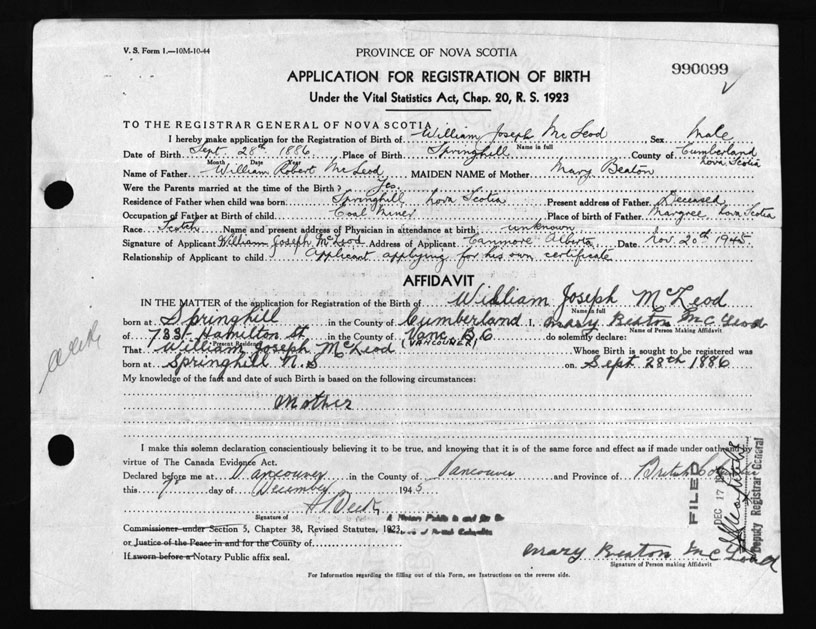 V. S. Form 1.—10M-10-44
PROVINCE OF NOVA SCOTIA
990099
APPLICATION FOR REGISTRATION OF BIRTH
Under the Vital Statistics Act, Chap. 20, R. S. 1923
TO THE REGISTRAR GENERAL OF NOVA SCOTIA
I hereby make application for the Registration of Birth of William Joseph McLeod Sex Male
Name in full
Date of Birth Sept 28th 1886 Place of Birth Springhill County of Cumberland
Month Date Year
Nova Scotia
Name of Father William Robert McLeod MAIDEN NAME of Mother Mary Beaton
Were the Parents married at the time of the Birth? Yes.
Residence of Father when child was born Springhill Nova Scotia Present address of Father Deceased
Occupation of Father at Birth of child Coal Miner Place of birth of Father Margree Nova Scotia
Race Scotch Name and present address of Physician in attendance at birth unknown
Signature of Applicant William Joseph McLeod Address of Applicant Canmore Alberta Date Nov. 20th 1945.
Relationship of Applicant to child Applicant applying for his own certificate
AFFIDAVIT
IN THE MATTER of the application for Registration of the Birth of William Joseph McLeod
Name in full
born at Springhill in the County of Cumberland I, Mary Beaton McLeod
Name of Person Making Affidavit
of 733 Hamilton St. in the County of Vanc. B.C do solemnly declare:
Present Residence
(VANCOUVER)
That William Joseph McLeod Whose Birth is sought to be registered was
born at Springhill N.S on Sept 28th 1886
My knowledge of the fact and date of such Birth is based on the following circumstances:
Mother
I make this solemn declaration conscientiously believing it to be true, and knowing that it is of the same force and effect as if made under oath and by
virtue of The Canada Evidence Act.
Declared before me at Vancouver in the County of Vancouver and Province of British Columbia
this 7 day of December 1945
Signature of
A Notary Public in and for the
Commissioner under Section 5, Chapter 38, Revised Statutes, 1923
of British Columbia
or Justice of the Peace in and for the County of
If sworn before a Notary Public affix seal.
Mary Beaton McLeod
Signature of Person making Affidavit
For Information regarding the filling out of this Form, see Instructions on the reverse side.
FILED
DEC 17
Deputy Registrar General